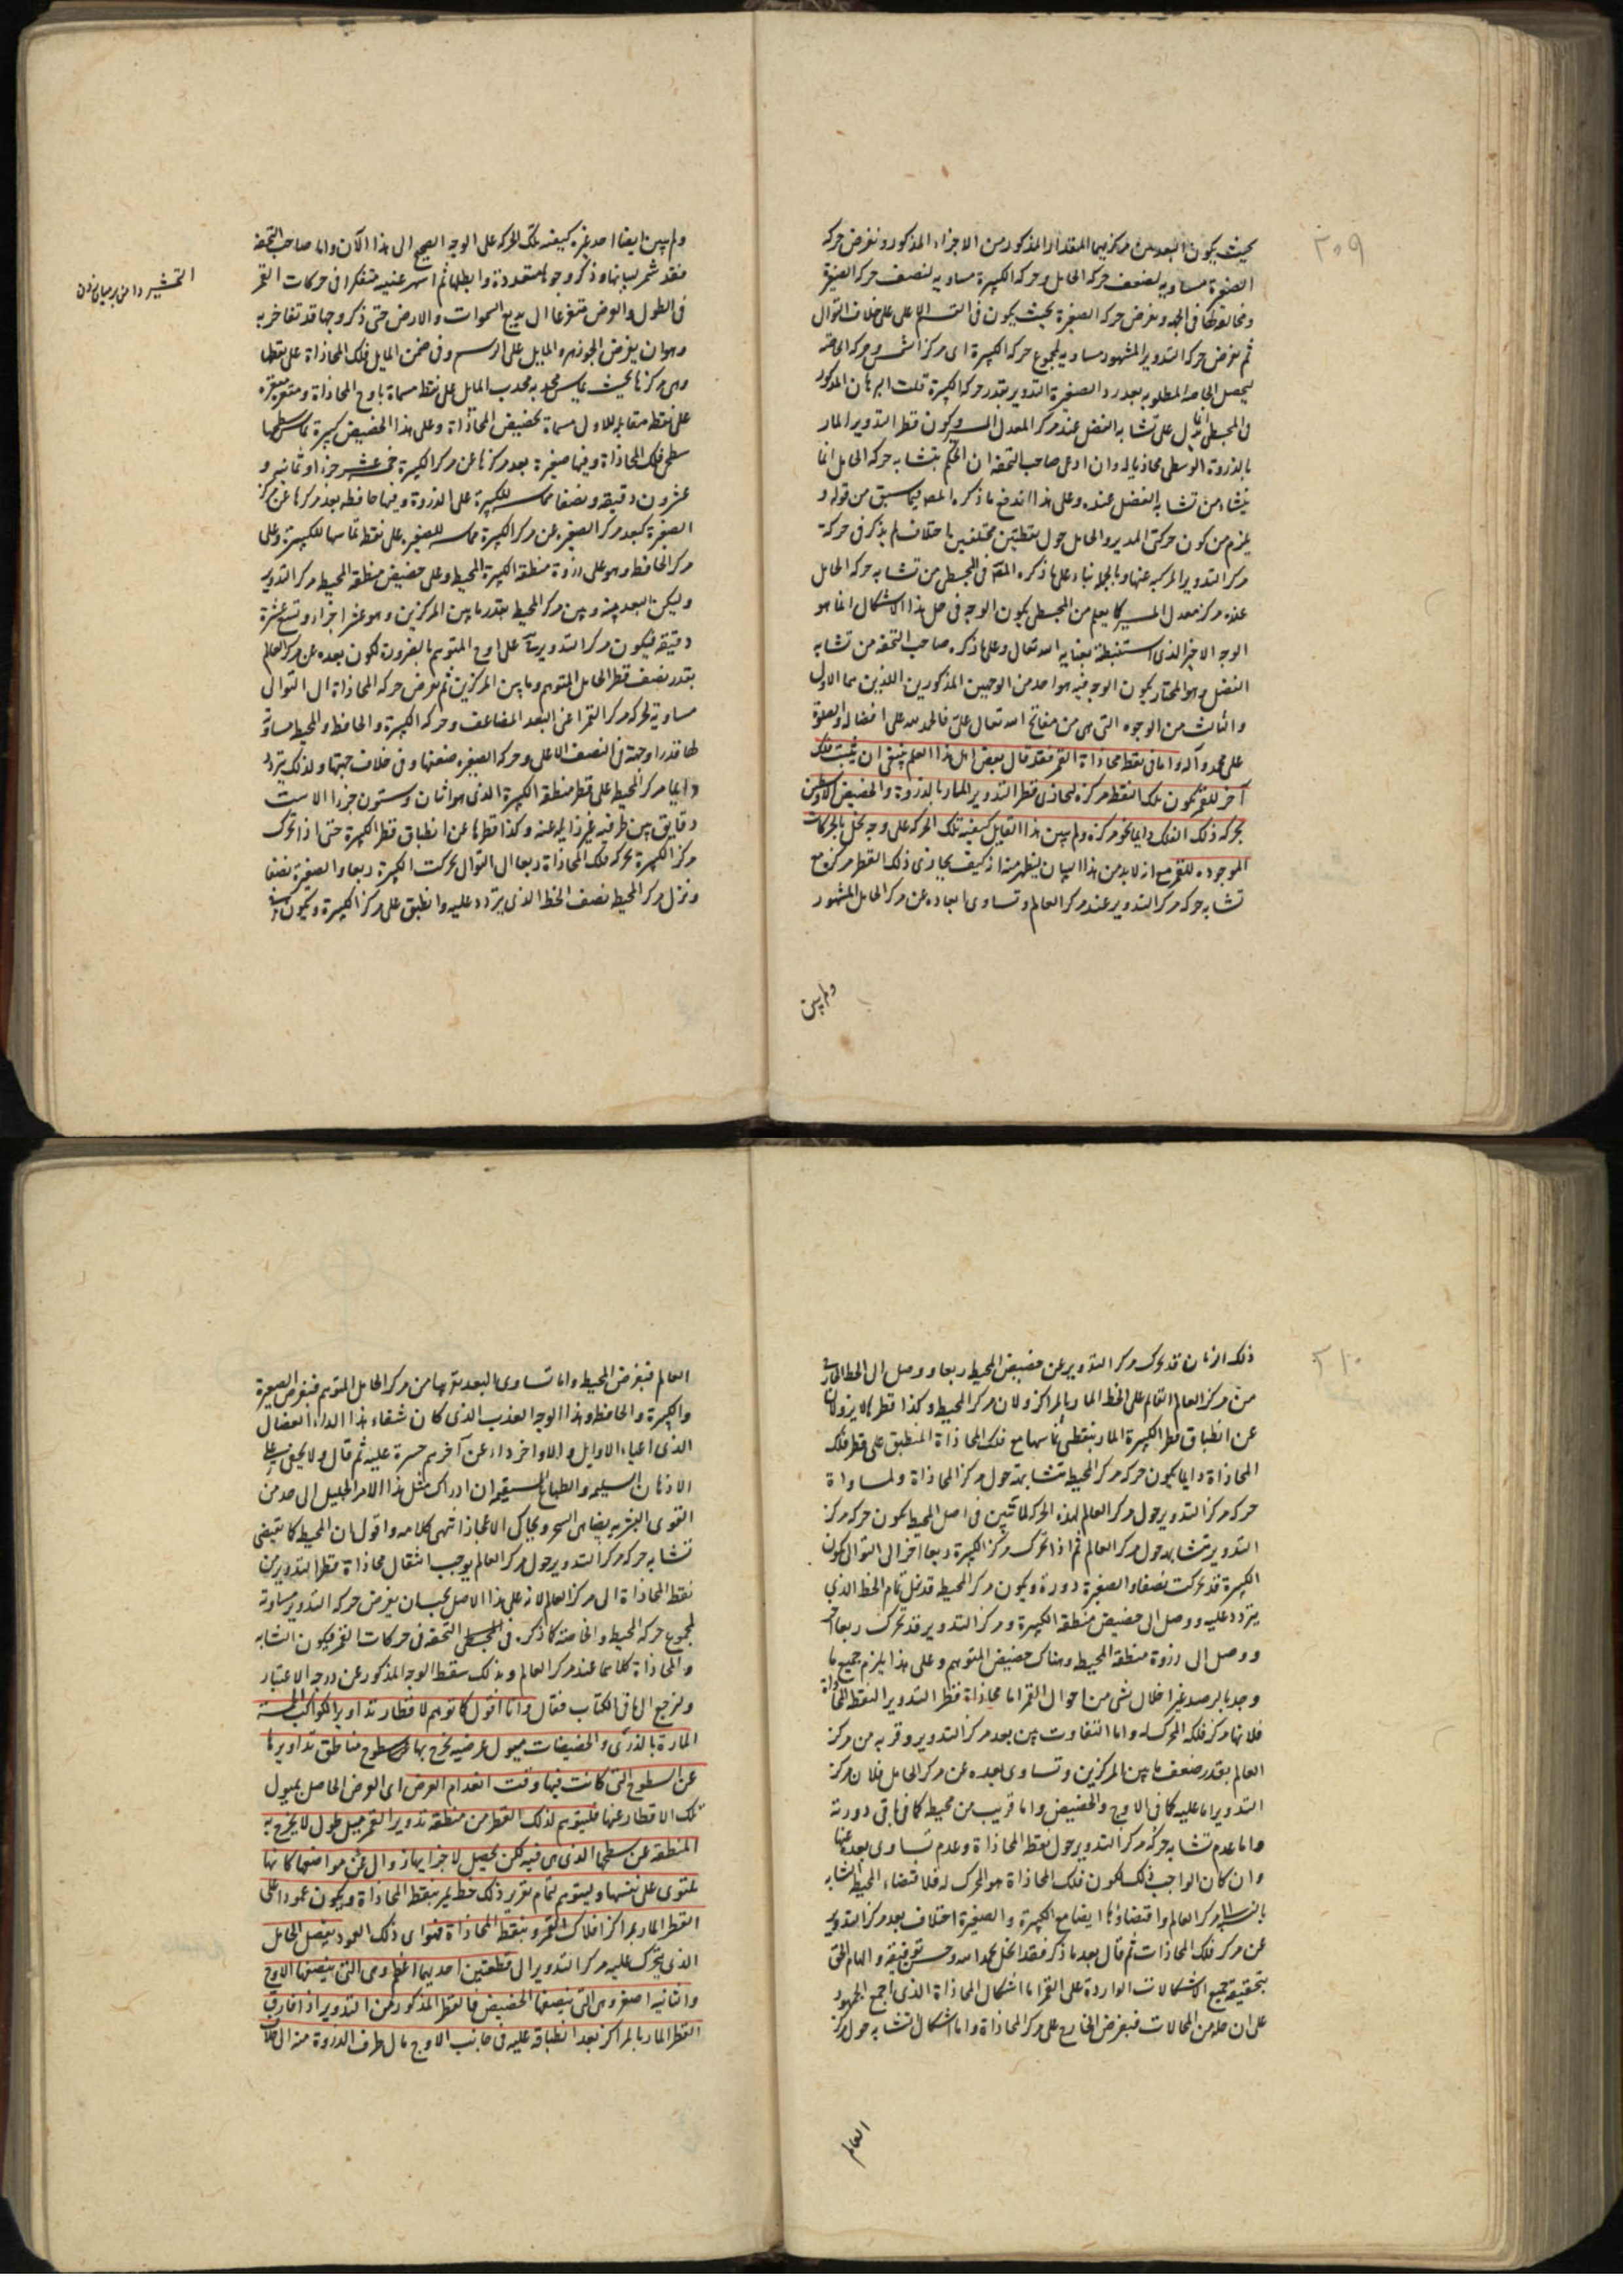 ٢٠٩
بحيث يكون البعد بين مركزيهما المقدار المذكور من الاجزاء المذكورة ونفرض حركة
الصغيرة مساوية لضعف حركة الحامل وحركة الكبيرة مساوية لنصف حركة الصغيرة
ومخالفة لها فى الجهة ونفرض حركة الصغيرة بحيث يكون فى النصف الاعلى على خلاف التوالى
ثم نفرض حركة التدوير المشهود مساوية لمجموع حركة الكبيرة اى مركز الشمس وحركة الخاصة
ليحصل الخاصة المطلوبة بعد رد الصغيرة التدوير بقدر حركة الكبيرة قلت البرهان المذكور
فى المجسطى انما دل على تشابه الفضل عند مركز المعدل المسير وكون قطر التدوير المار
بالذروة الوسطى محاذيا له وان ادعى صاحب التحفة ان الحكم بتشابه حركة الحامل انما
ينشاء من تشابه الفضل عنده وعلى هذا اندفع ما ذكره المصـ فيما سبق من قوله و
يلزم من كون حركتى المدير والحامل حول نقطتين مختلفتين اختلاف لم يذكر فى حركة
مركز التدوير المركبة عنها وبالجملة بناء على ما ذكره المصـ فى المجسطى من تشابه حركة الحامل
عند مركز معدل المسير كما يعلم من المجسطى يكون الوجه فى حل هذا الاشكال انما هو
الوجه الاخير الذى استنبطته بعناية الله تعالى وعلى ما ذكره صاحب التحفة من تشابه
الفضل وهو المختار يكون الوجه فيه هو احد من الوجهين المذكورين اللذين هما الاول
والثالث من الوجوه التى هى من مفاتح الله تعالى علىّ فالحمد لله على افضاله والصلوة
على محمد وآله واما فى نقطة محاذاة القمر فقد قال بعض اهل هذا العلم ينبغى ان يثبت فلك
آخر للقمر يكون تلك النقطة مركزه ليحاذى قطر التدوير المار بالذروة والحضيض الاوسطين
بحركة ذلك الفلك دايما نحو مركزه ولم يبين هذا القايل كيفية تلك الحركة على وجه يخل بالحركات
الموجودة للقمر مع انه لابد من هذا البيان ليظهر منه انه كيف يحاذى ذلك القطر مركزه مع
تشابه حركة مركز التدوير عند مركز العالم وتساوى ابعاده عن مركز الحامل المشهور
ولم يبين
ولم يبين ايضا احد غيره كيفية تلك الحركة على الوجه الصحيح الى هذا الآن واما صاحب التحفة
فقد شمر لبيانها وذكر وجوها متعددة وابطلها ثم اسهر عينيه متفكرا فى حركات القمر
فى الطول والعرض متضرعا الى بديع السموات والارض حتى ذكر وجها قد تفاخر به
وهو ان يفرض الجوزهر والمايل على الرسم وفى ضمن المايل فلك المحاذاة على نقطها
وهى مركزها بحيث يماس محدبه محدب المايل على نقطة مسماة باوج المحاذاة ومقعر بمقعره
على نقطة مقابلة للاول مسماة بحضيض المحاذاة وعلى هذا الحضيض كبيرة تماس سطحها
سطحى فلك المحاذاة وفيها صغيرة بعد مركزها عن مركز الكبيرة خمسة عشر جزءا وثمانية و
عشرون دقيقة ونصفا مماسة للكبيرة على الذروة وفيها حافظة بعد مركزها عن مركز
الصغيرة كبعد مركز الصغيرة عن مركز الكبيرة مماسة للصغيرة على نقطة تماسها للكبيرة وعلى
مركز الحافظة وهو على ذروة منطقة الكبيرة المحيط وعلى حضيض منطقة المحيط مركز التدوير
وليكن البعد بينه وبين مركز المحيط بقدر ما بين المركزين وهو عشرة اجزاء وتسع عشرة
دقيقة فيكون مركز التدوير على اوج المتوهم بالضرورة لكون بعده عن مركز العالم
بقدر نصف قطر الحامل المتوهم وما بين المركزين ثم نفرض حركة المحاذاة الى التوالى
مساوية لحركة مركز القمر اعنى البعد المضاعف وحركة الكبيرة والحافظة والمحيط مساوية
لها قدرا وجهة فى النصف الاعلى وحركة الصغيرة ضعفها وفى خلاف جهتها ولذلك يتردد
دايما مركز المحيط على قطر منطقة الكبيرة الذى هو اثنان وستون جزءا الا ست
دقايق بين طرفيه غير زايله عنه وكذا قطرها عن انطباق قطر الكبيرة حتى اذا تحرك
مركز الكبيرة بحركة فلك المحاذاة ربعا الى التوالى تحركت الكبيرة ربعا والصغيرة نصفا
ونزل مركز المحيط نصف الخط الذى يتردد عليه وانطبق على مركز الكبيرة ويكون
التشمير دامن بر ميان زدن
٢١٠
ذلك الزمان قد تحرك مركز التدوير عن حضيض المحيط ربعا ووصل الى الخط الخارج
من مركز العالم القايم على الخط المار بالمراكز ولان مركز المحيط وكذا قطرها لا يزولان
عن انطباق قطر الكبيرة المار بنقطتى تماسها مع فلك المحاذاة المنطبق على قطر فلك
المحاذاة دايما يكون حركة مركز المحيط متشابهة حول مركز المحاذاة ولمساواة
حركة مركز التدوير حول مركز العالم لهذه الحركة لما تبين فى اصل المحيط يكون حركة مركز
التدوير متشابهة حول مركز العالم ثم اذا تحرك مركز الكبيرة ربعا آخر الى التوالى يكون
الكبيرة قد تحركت نصفا والصغيرة دورة ويكون مركز المحيط قد نزل تمام الخط الذى
يتردد عليه ووصل الى حضيض منطقة الكبيرة ومركز التدوير قد تحرك ربعا آخر
ووصل الى ذروة منطقة المحيط وهناك حضيض المتوهم وعلى هذا يلزم جميع ما
وجد بالرصد بغير اخلال بشئ من احوال القمر اما محاذاة قطر التدوير النقطة المحاذاة
فلانها مركز فلكه المحرك له واما التفاوت بين بعد مركز التدوير وقربه من مركز
العالم بقدر ضعف ما بين المركزين وتساوى بعده عن مركز الحامل فلان مركز
التدوير اما عليه كما فى الاوج والحضيض واما قريب من محيطه كما فى باقى دورته
واما عدم تشابه حركة مركز التدوير حول نقطة المحاذاة وعدم تساوى بعده عنها
وان كان الواجب ذلك لكون فلك المحاذاة هو المحرك له فلاقتضاء المحيط التشابه
بالنسبة الى مركز العالم واقتضاؤها ايضا مع الكبيرة والصغيرة اختلاف بعد مركز التدوير
عن مركز فلك المحاذات ثم قال بعد ما ذكر فقد انحل بحمد الله وحسن توفيقه والهام الحق
بتحقيقه جميع الاشكالات الواردة على القمر اما اشكال المحاذاة الذى اجمع الجمهور
على ان حله من المحالات فبفرض الخارج على مركز المحاذاة واما اشكال التشابه حول مركز
العالم
العالم فبفرض المحيط واما تساوى البعد بتها من مركز الحامل المتوهم فبفرض الصغيرة
والكبيرة والحافظة وهذا الوجه العذب الذى كان شفاء هذا الداء العضال
الذى اعيا الاوايل والاواخر دواءه عن آخرهم حسرة عليه ثم قال ولا يخفى على
الاذهان السليمة والطباع المستقيمة ان ادراك مثل هذا الامر الجليل الى حد من
القوى البشرية يضاهى السحر ويحاكى الاعجاز انتهى كلامه واقول ان المحيط كما يقتضى
تشابه حركة مركز التدوير حول مركز العالم يوجب انتقال محاذاة قطر التدوير من
نقطة المحاذاة الى مركز العالم لانه على هذا الاصل يجب ان يفرض حركة التدوير مساوية
لمجموع حركة المحيط والخاصة كما ذكره فى التحفة فى حركات القمر فيكون التشابه
والمحاذاة كلاهما عند مركز العالم وبذلك سقط الوجه المذكور عن درجة الاعتبار
ولنرجع الى ما فى الكتاب فقال وانا اقول كما توهم لاقطار تداوير الكواكب الخمسة
المارة بالذرى والحضيضات ميول عرضية يخرج بها سطوح مناطق تداويرها
عن السطوح التى كانت فيها وقت انعدام العرض اى العرض الحاصل بميول
تلك الاقطار عنها فليتوهم لذلك القطر من منطقة تدوير القمر ميل طولى لا يخرج به
المنطقة عن سطحها الذى هى فيه لكن يحصل لاجزائها زوال عن مواضعها كانها
تلتوى على نفسها وليتوهم لتمام تقرير ذلك خط يمر بنقطة المحاذاة ويكون عمودا على
القطر المار بمراكز افلاك القمر وبنقطة المحاذاة فهو اى ذلك العمود يفصل الحامل
الذى يتحرك عليه مركز التدوير الى قطعتين احديهما اعظم وهى التى ينصفها الاوج
والثانية اصغر وهى التى ينصفها الحضيض فالقطر المذكور من التدوير اذا فارق
القطر المار بالمراكز بعد انطباقه عليه فى جانب الاوج مال طرف الذروة منه الى خلاف